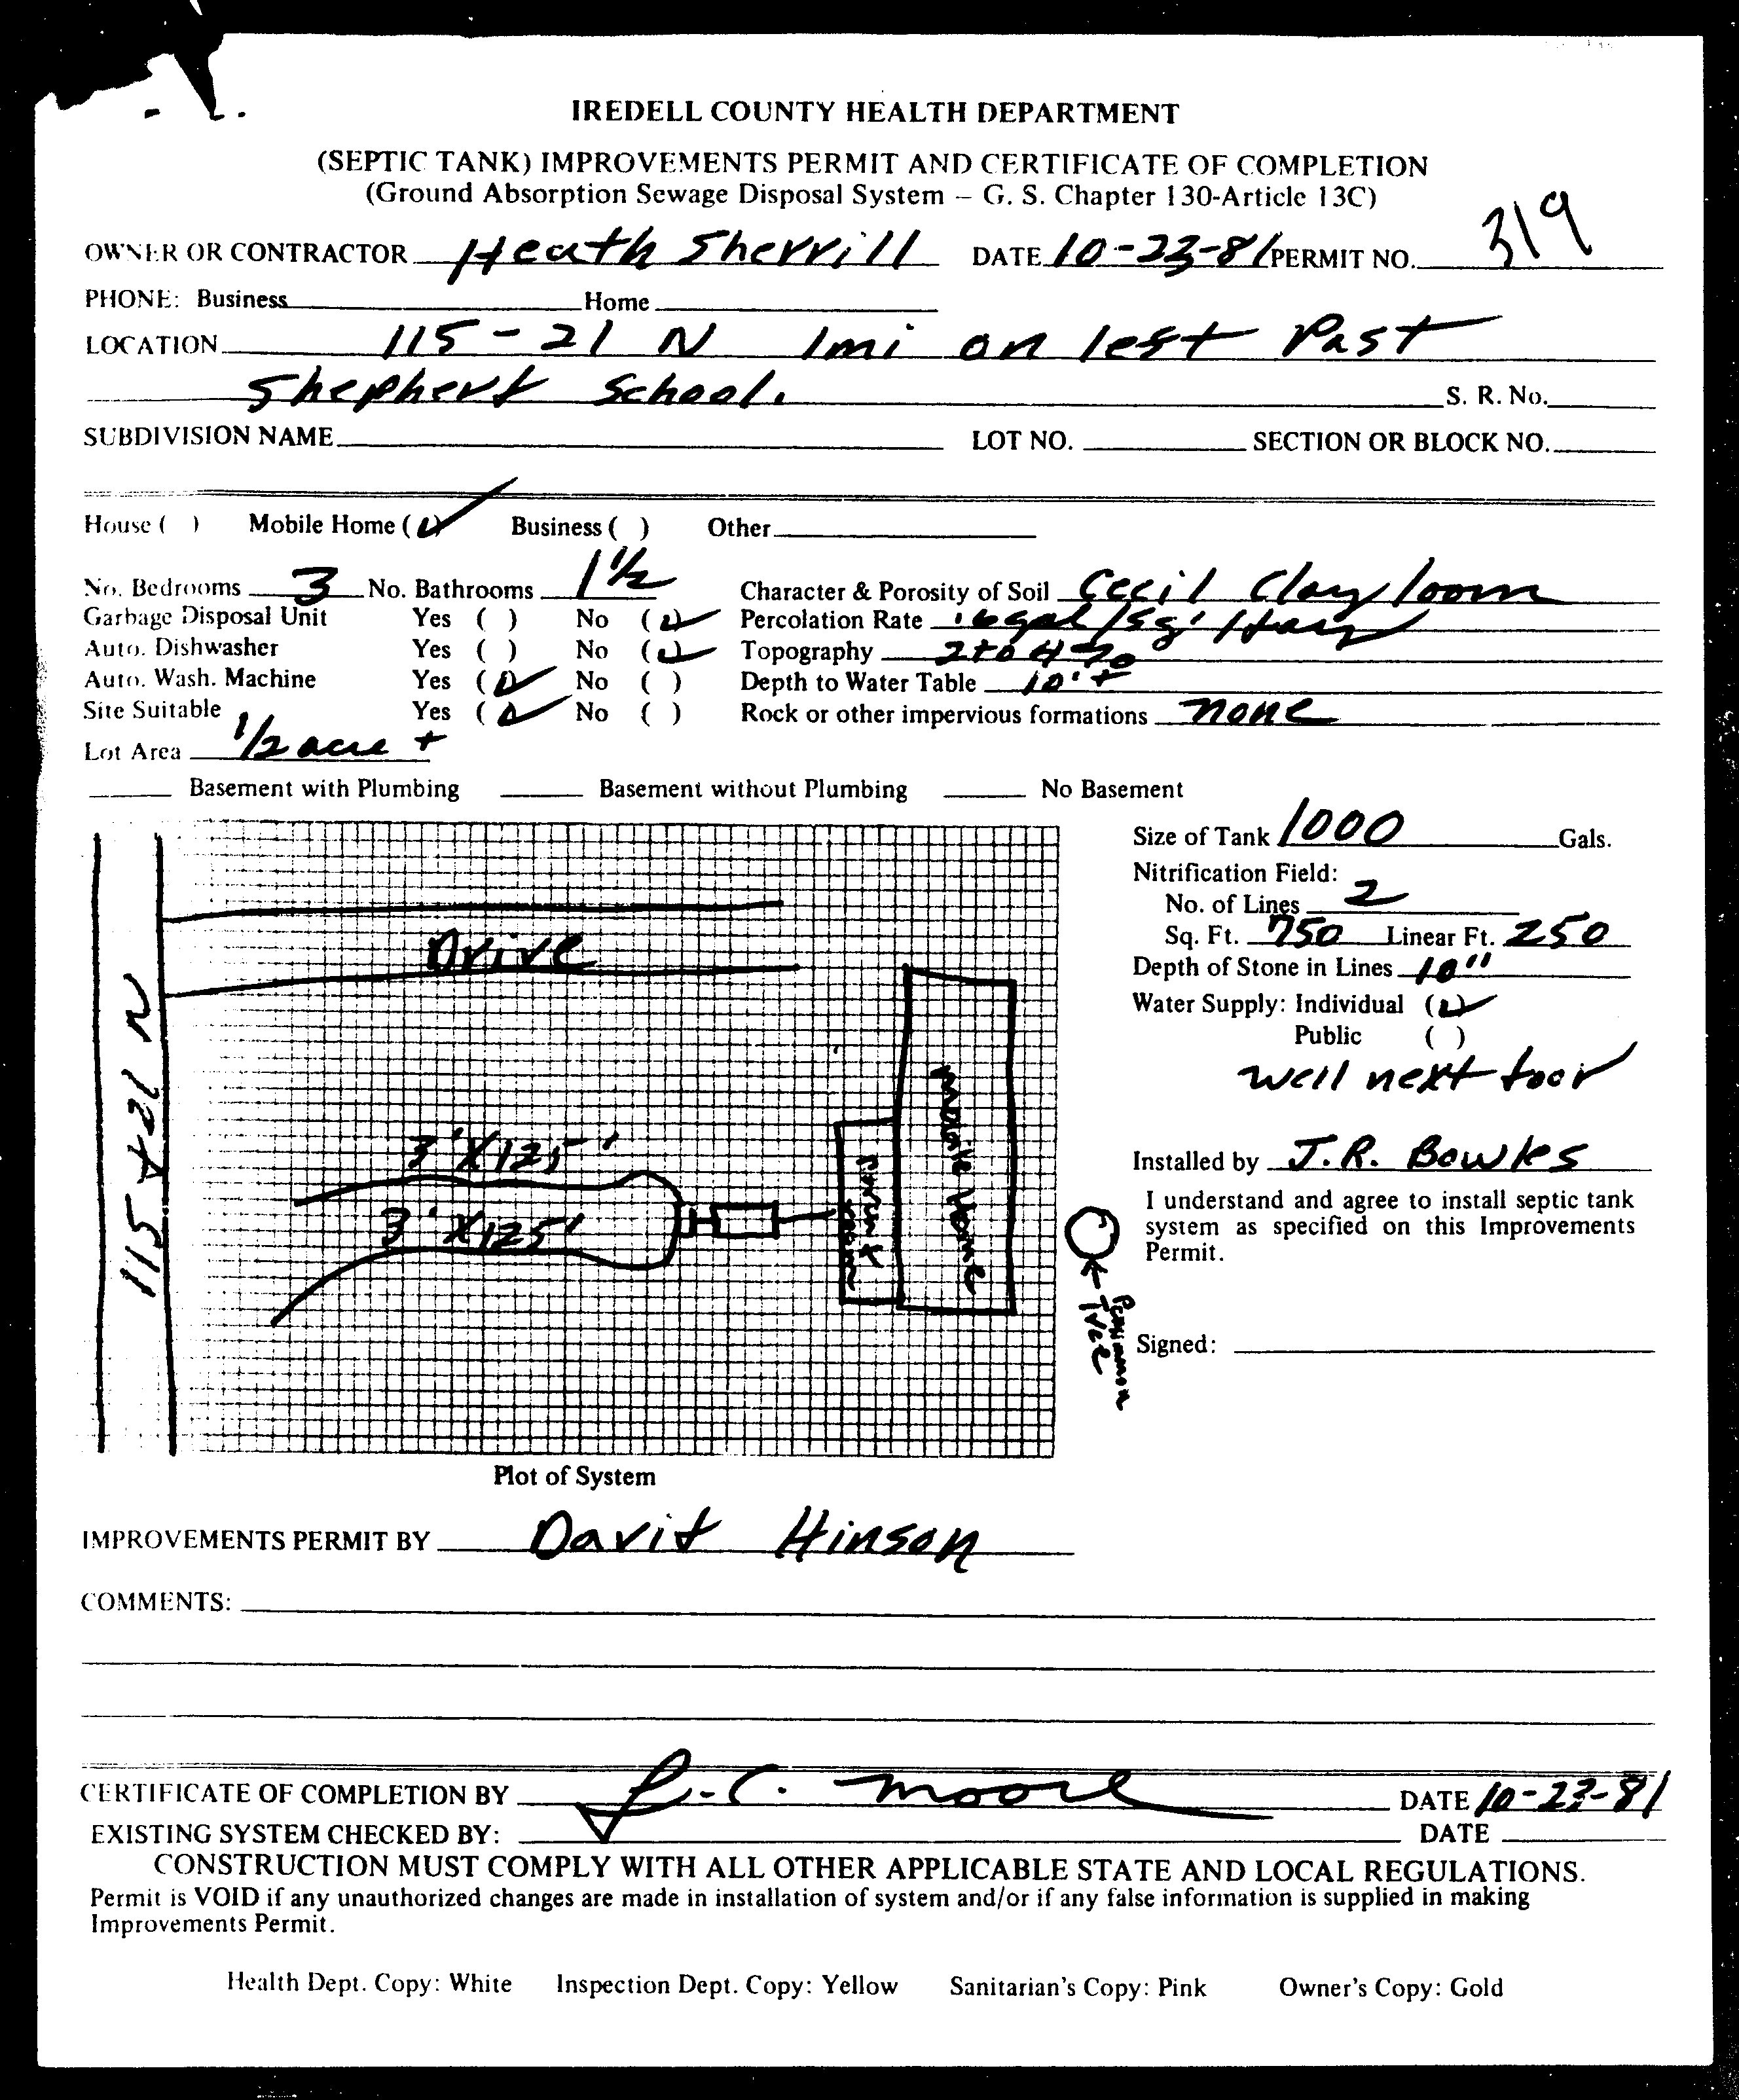 IREDELL COUNTY HEALTH DEPARTMENT
(SEPTIC TANK) IMPROVEMENTS PERMIT AND CERTIFICATE OF COMPLETION
(Ground Absorption Sewage Disposal System – G. S. Chapter 130-Article 13C)
OWNER OR CONTRACTOR Heath Sherrill DATE 10-23-81 PERMIT NO. 319
PHONE: Business Home
LOCATION 115-21 N 1mi on left Past
Shepherd School. S. R. No.
SUBDIVISION NAME LOT NO. SECTION OR BLOCK NO.
House ( ) Mobile Home (✓) Business ( ) Other
No. Bedrooms 3 No. Bathrooms 1 1/2 Character & Porosity of Soil Cecil Clay loom
Garbage Disposal Unit Yes ( ) No (✓) Percolation Rate .6 gal/sq'/day
Auto. Dishwasher Yes ( ) No (✓) Topography 2 to 4 %
Auto. Wash. Machine Yes (✓) No ( ) Depth to Water Table 10' +
Site Suitable Yes (✓) No ( ) Rock or other impervious formations none
Lot Area 1/2 acre +
Basement with Plumbing Basement without Plumbing No Basement
Size of Tank 1000 Gals.
Nitrification Field:
No. of Lines 2
Sq. Ft. 750 Linear Ft. 250
Depth of Stone in Lines 10"
Water Supply: Individual (✓)
Public ( )
well next door
Installed by J.R. Bowles
I understand and agree to install septic tank
system as specified on this Improvements
Permit.
Signed:
115 + 21 N
Drive
3' X 125'
3' X 125'
Mobile Home
Persimmon
Tree
Plot of System
IMPROVEMENTS PERMIT BY David Hinson
COMMENTS:
CERTIFICATE OF COMPLETION BY L.C. Moore DATE 10-23-81
EXISTING SYSTEM CHECKED BY: DATE
CONSTRUCTION MUST COMPLY WITH ALL OTHER APPLICABLE STATE AND LOCAL REGULATIONS.
Permit is VOID if any unauthorized changes are made in installation of system and/or if any false information is supplied in making
Improvements Permit.
Health Dept. Copy: White Inspection Dept. Copy: Yellow Sanitarian's Copy: Pink Owner's Copy: Gold